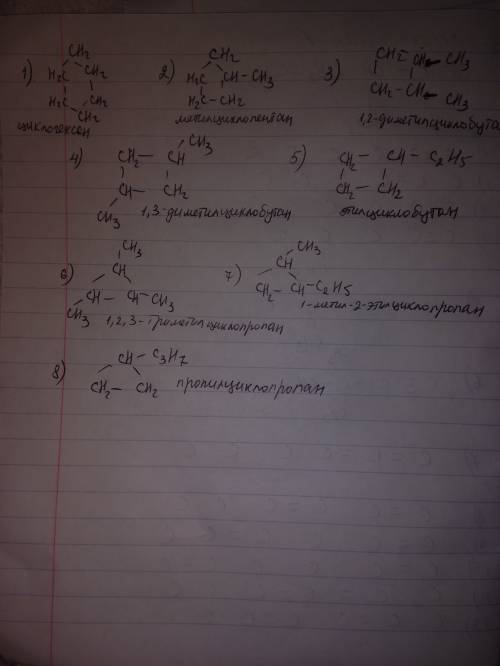 1) CH2 H2C CH2 H2C CH2 CH2
циклогексан
2) CH2 H2C CH-CH3 H2C-CH2
метилциклопентан
3) CH2 CH-CH3 CH2-CH-CH3
1,2-диметилциклобута
4) CH2-CH CH3 CH-CH2 CH3
1,3-диметилциклобутан
5) CH2-CH-C2H5 CH2-CH2
этилциклобутан
6) CH3 CH CH-CH-CH3 CH3
1,2,3-триметилциклопропан
7) CH3 CH CH2-CH-C2H5
1-метил-2-этилциклопропан
8) CH-C3H7 CH2-CH2
пропилциклопропан